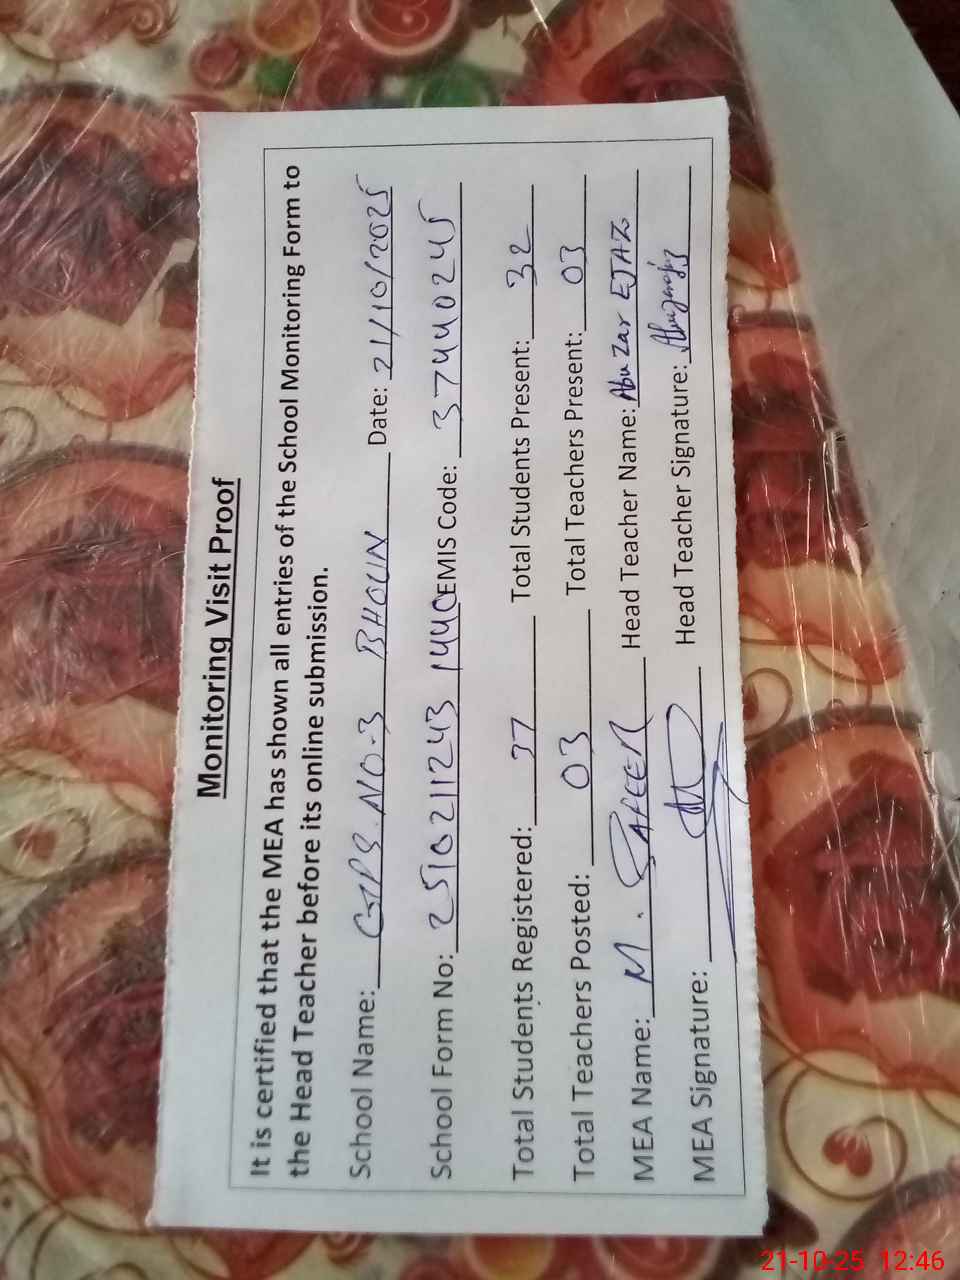 Monitoring Visit Proof
It is certified that the MEA has shown all entries of the School Monitoring Form to
the Head Teacher before its online submission.
School Name: GPS NO-3 BHOUN Date: 21/10/2025
School Form No: 2510211243 1440 EMIS Code: 37440245
Total Students Registered: 37 Total Students Present: 32
Total Teachers Posted: 03 Total Teachers Present: 03
MEA Name: M. SAFEER Head Teacher Name: Abu Zar EJAZ
MEA Signature: Head Teacher Signature:
21-10-25 12:46